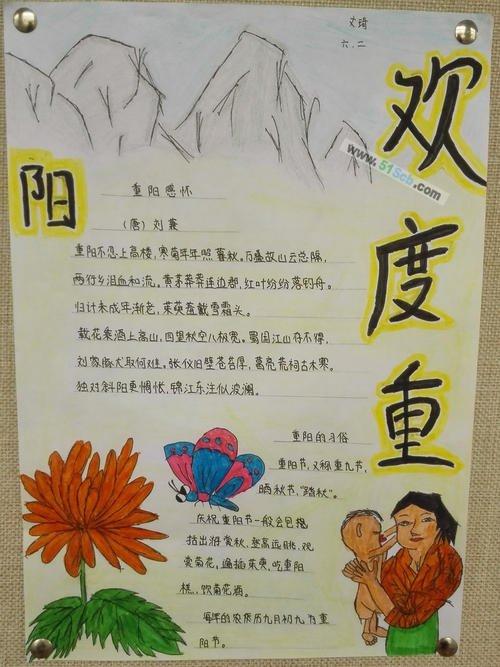 文琦
六.二
欢度重
阳
www.51Scb.com
重阳感怀
(唐)刘兼
重阳不忍上高楼,寒菊年年照暮秋。万叠故山云总隔,
两行乡泪血和流。黄茅莽莽连边郡,红叶纷纷落钓舟。
归计未成年渐老,茱萸羞戴雪霜头。
载花乘酒上高山,四望秋空八极宽。蜀国江山存不得,
刘家豚犬取何难。张仪旧壁苍苔厚,葛亮荒祠古木寒。
独对斜阳更惆怅,锦江东注似波澜。
重阳的习俗
重阳节,又称重九节,
晒秋节,"踏秋"。
庆祝重阳节一般会包括
括出游赏秋,登高远眺,观
赏菊花,遍插茱萸,吃重阳
糕,饮菊花酒。
每年的农历九月初九为重
阳节。